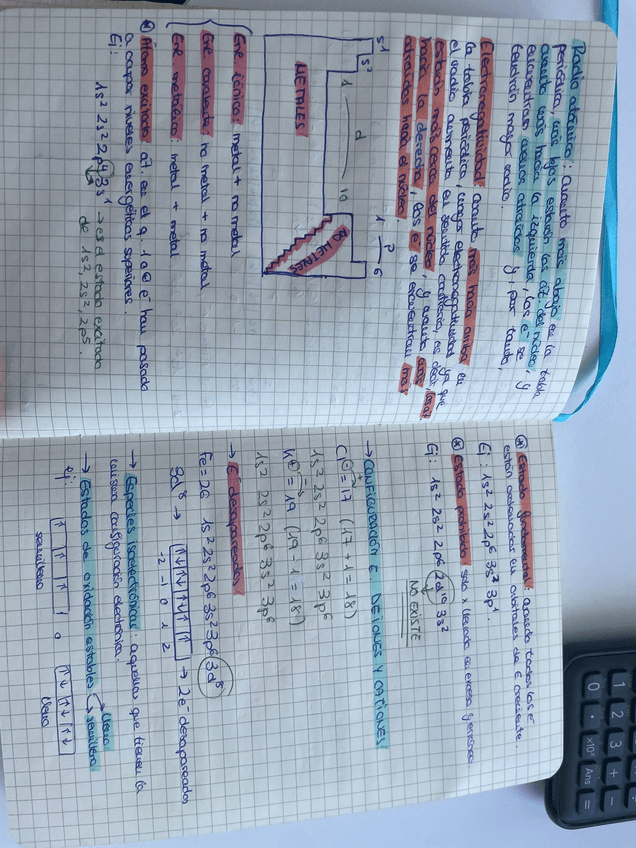 Radio atómico: Cuanto más abajo en la tabla
periódica, más lejos estarán los e⁻ del núcleo, y
cuanto más hacia la izquierda, los e⁻ se
encuentran menos atraídos y, por tanto,
tendrán mayor radio.
Electronegatividad: cuanto más hacia arriba en
la tabla periódica, mayor electronegatividad ya que
el radio aumenta en sentido contrario, es decir, los e⁻
estarán más cerca del núcleo, y cuanto más
hacia la derecha, los e⁻ se encuentran más
atraídos hacia el núcleo.
s¹
s²
1 d 10
1 P 6
METALES
NO METALES
Enl. iónico: metal + no metal
Enl. covalente: no metal + no metal
Enl. metálico: metal + metal
* Átomo excitado: át. en el q. 1 o ⊕ e⁻ han pasado
a ocupar niveles energéticos superiores.
Ej:
1s² 2s² 2p⁴ 3s¹ → es el estado excitado
de 1s², 2s², 2p⁵.
* Estado fundamental: cuando todos los e⁻
están ordenados en orbitales de E creciente.
Ej: 1s² 2s² 2p⁶ 3s² 3p¹.
* Estado prohibido:
Ej: 1s² 2s² 2p⁶ 2d¹⁰ 3s²
NO EXISTE
→ CONFIGURACIÓN E⁻ DE IONES Y CATIONES
Cl⊖ = 17 (17 + 1 = 18)
1s² 2s² 2p⁶ 3s² 3p⁶
K⊕ = 19 (19 - 1 = 18)
1s² 2s² 2p⁶ 3s² 3p⁶
→ E⁻ desapareados
Fe = 26 1s² 2s² 2p⁶ 3s² 3p⁶ 3d⁸
3d⁸ → ↑↓ ↑↓ ↑↓ ↑ ↑ → 2 e⁻ desapareados
-2 -1 0 1 2
→ Especies isoelectrónicas: aquellas que tienen la
misma configuración electrónica.
→ Estados de oxidación estables → lleno
→ semilleno
ej:
↑ ↑ ↑ o ↑↓ ↑↓ ↑↓
semilleno lleno
0 1 2 3
• + -
×10ˣ Ans =